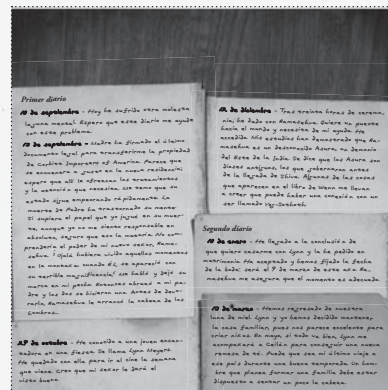 Primer diario
10 de septiembre - Hoy he sufrido otra molesta
laguna mental. Espero que este diario me ayude
con este problema.
13 de septiembre - Madre ha firmado el último
documento legal para transferirme la propiedad
de Cushing Importers of America. Parece que
se encuentra a gusto en la nueva residencia;
espero que allí le ofrezcan los tratamientos
y la atención que necesita. Me temo que su
estado sigue empeorando rápidamente. La
muerte de Padre ha trastornado su mente.
Si supiera el papel que yo jugué en su muer-
te, aunque yo no me siento responsable en
absoluto, seguro que eso la mataría. No com-
prendería el poder de mi nuevo señor, Rama-
sekva. ¡Ojalá hubiera vivido aquellos momentos
en la montaña cuando Él se apareció con
su terrible magnificencia! Me habló y dejó su
marca en mi pecho. Entonces abrasó a mi pa-
dre y los dos se hicieron uno. Antes de devo-
rarlo, Ramasekva le arrancó la cabeza de los
hombros.
29 de octubre - He conocido a una joven encan-
tadora en una fiesta. Se llama Lynn Meyers.
He quedado con ella para ir al cine la semana
que viene. Creo que mi señor le dará el
visto bueno.
12 de diciembre - Tras treinta horas de ceremo-
nia, he dado con Ramasekva. Quiere un puente
hacia el mundo y necesita de mi ayuda. He
accedido. Mis estudios han demostrado que Ra-
masekva es un desconocido Asura, un demonio
del Este de la India. Se dice que los Asura son
dioses antiguos, los que gobernaron antes
de la llegada de Shiva. Algunas de las cosas
que aparecen en el libro de Wenn me llevan
a creer que puede haber una conexión con un
ser llamado Yog-Sothoth.
Segundo diario
10 de enero - He llegado a la conclusión de
que quiero casarme con Lynn y la he pedido en
matrimonio. Ha aceptado y hemos fijado la fecha
de la boda: será el 7 de marzo de este año. Ra-
masekva me asegura que el momento es adecuado.
10 de marzo - Hemos regresado de nuestra
luna de miel. Lynn y yo hemos decidido mantener
la casa familiar, pues nos parece excelente para
criar niños. En mayo, si todo va bien, Lynn me
acompañará a Ceilán para conseguir una nueva
remesa de té. Puede que sea mi último viaje a
ese país durante una buena temporada. Un hom-
bre que planea formar una familia debe estar
dispuesto a sentar un poco la cabeza.